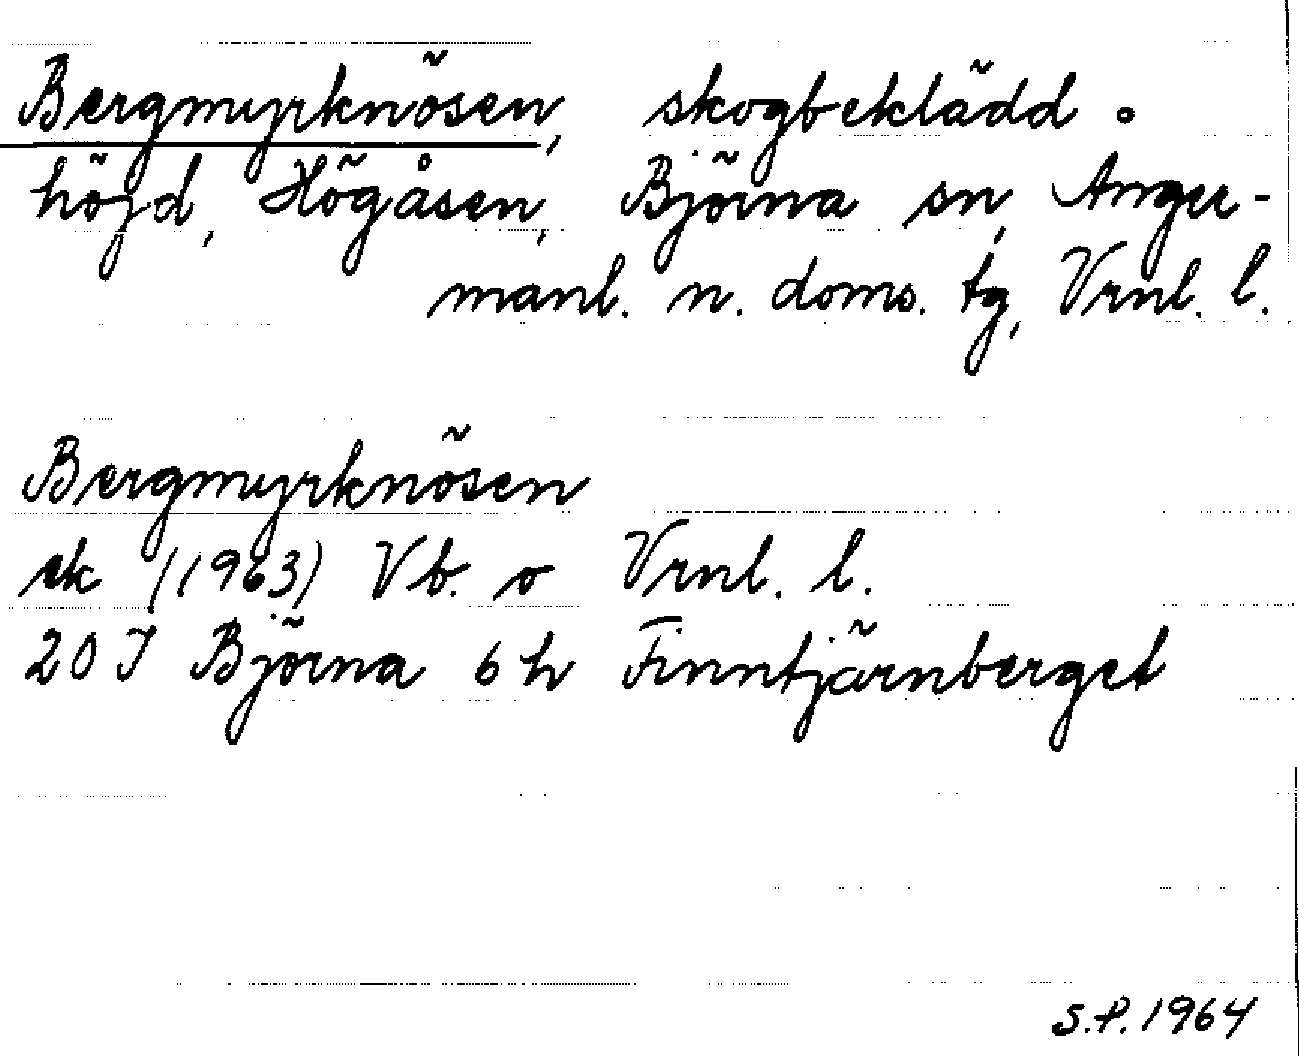 Bergmyrknösen, skogbeklädd
höjd, Högåsen, Björna sn, Ånger-
manl. n. doms. tg, Vrnl. l.
Bergmyrknösen
ek (1963) Vb. o Vrnl. l.
20 I Björna 6 h Finntjärnberget
S.P. 1964